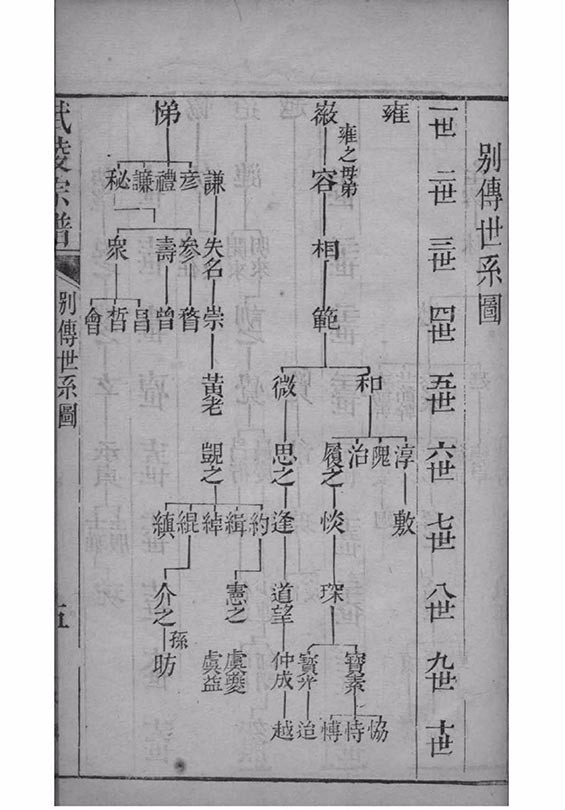 别傳世系圖
一世 二世 三世 四世 五世 六世 七世 八世 九世 十世
雍
淳 敷
恊
和
雍之母弟
治 寶素 恃
容 相 範 履之 惔 琛
寶光 迨
微 思之 逢 道望 仲成 越
約
緝 憲之 虞夔
謙 失名 崇 黃老 覬之 綽 虞益
彦 參 緄
悌 禮 壽 曾 縝 介之 孫 昉
昌
秘 衆 哲
會
武陵宗譜 别傳世系圖 五